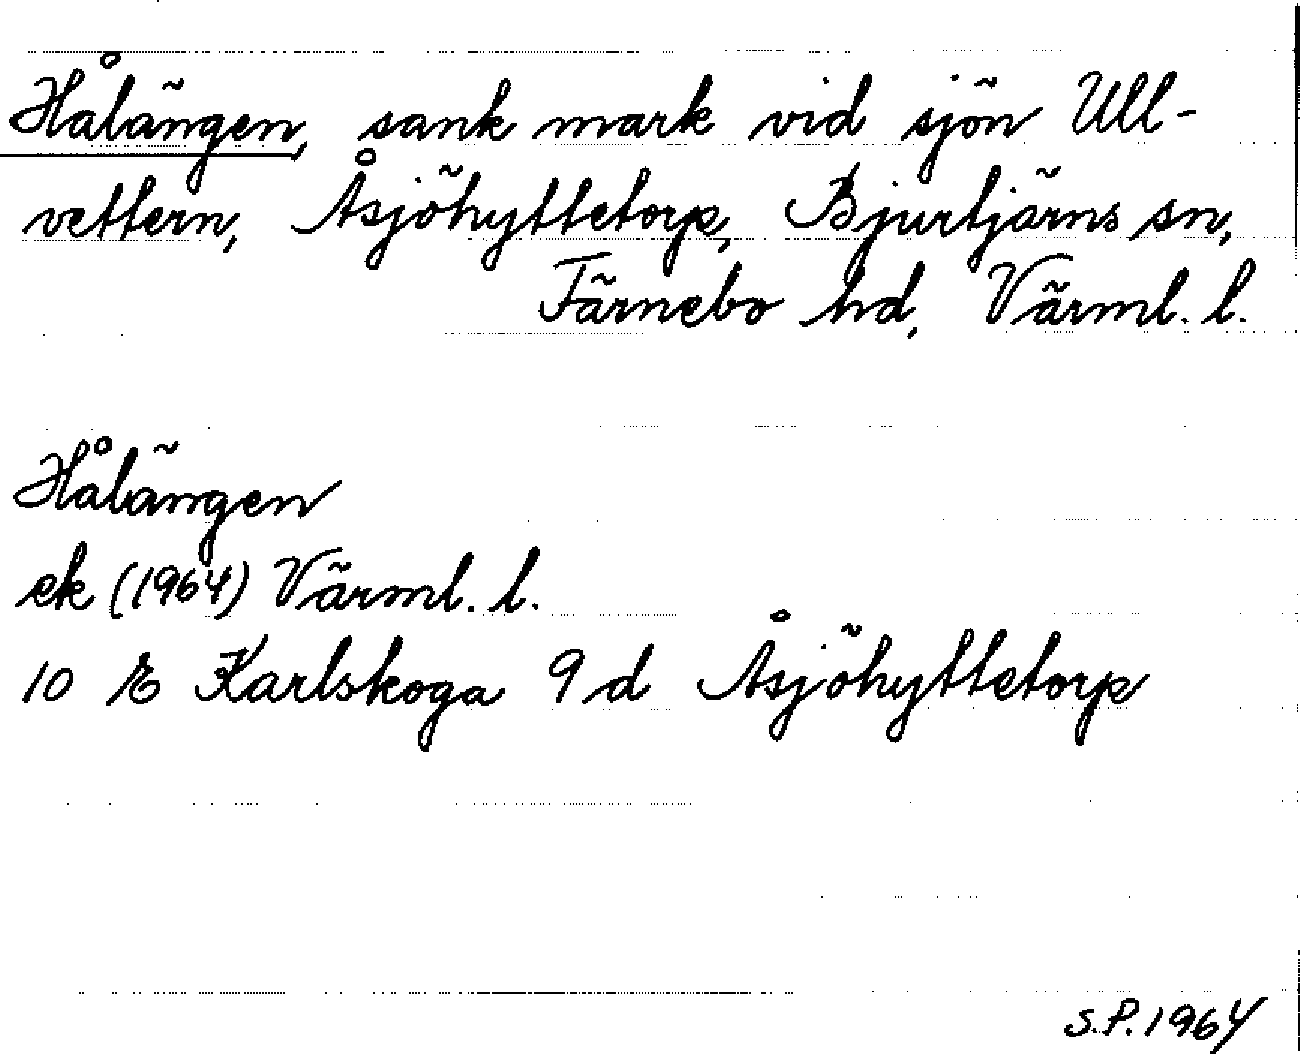 Hålängen, sank mark vid sjön Ull-
vettern, Åsjöhyttetorp, Bjurtjärns sn,
Färnebo hd, Värml. l.
Hålängen
ek (1964) Värml. l.
10 E Karlskoga 9d Åsjöhyttetorp
S.P. 1964